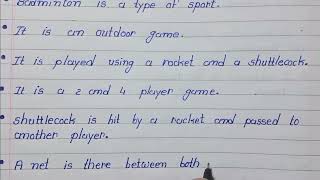 Badminton is a type of sport.
• It is an outdoor game.
• It is played using a racket and a shuttlecock.
• It is a 2 and 4 player game.
• Shuttlecock is hit by a racket and passed to
another player.
• A net is there between both